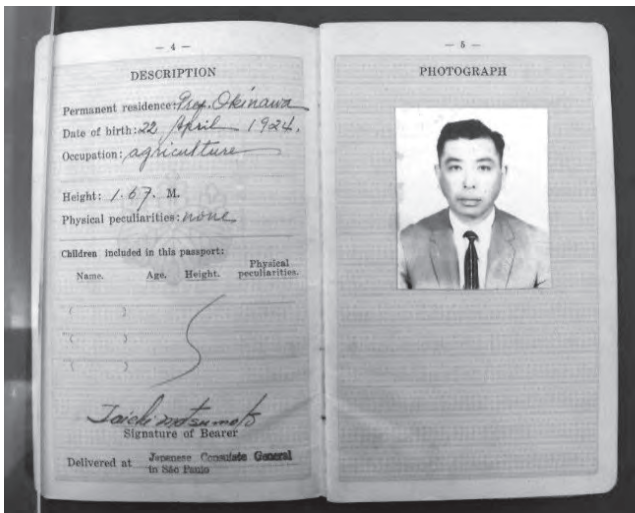 — 4 —
DESCRIPTION
Permanent residence: Pref. Okinawa
Date of birth: 22 April 1924.
Occupation: agriculture
Height: 1.67. M.
Physical peculiarities: none
Children included in this passport:
Name. Age. Height. Physical peculiarities.
( )
( )
( )
Matsumoto
Signature of Bearer
Delivered at Japanese Consulate General
in São Paulo
— 5 —
PHOTOGRAPH